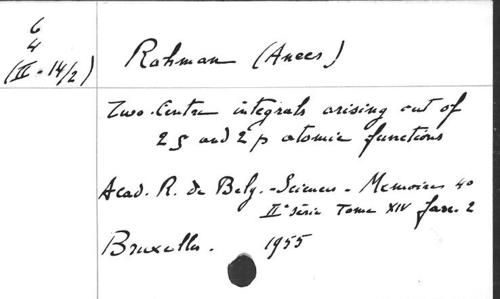 6
4
(II - 14/2)
Rahman (Anees)
Two-Centre integrals arising out of
2 s and 2 p atomic functions
Acad. R. de Belg. - Sciences - Memoires 40
II° série Tome XIV fasc. 2
Bruxelles. 1955